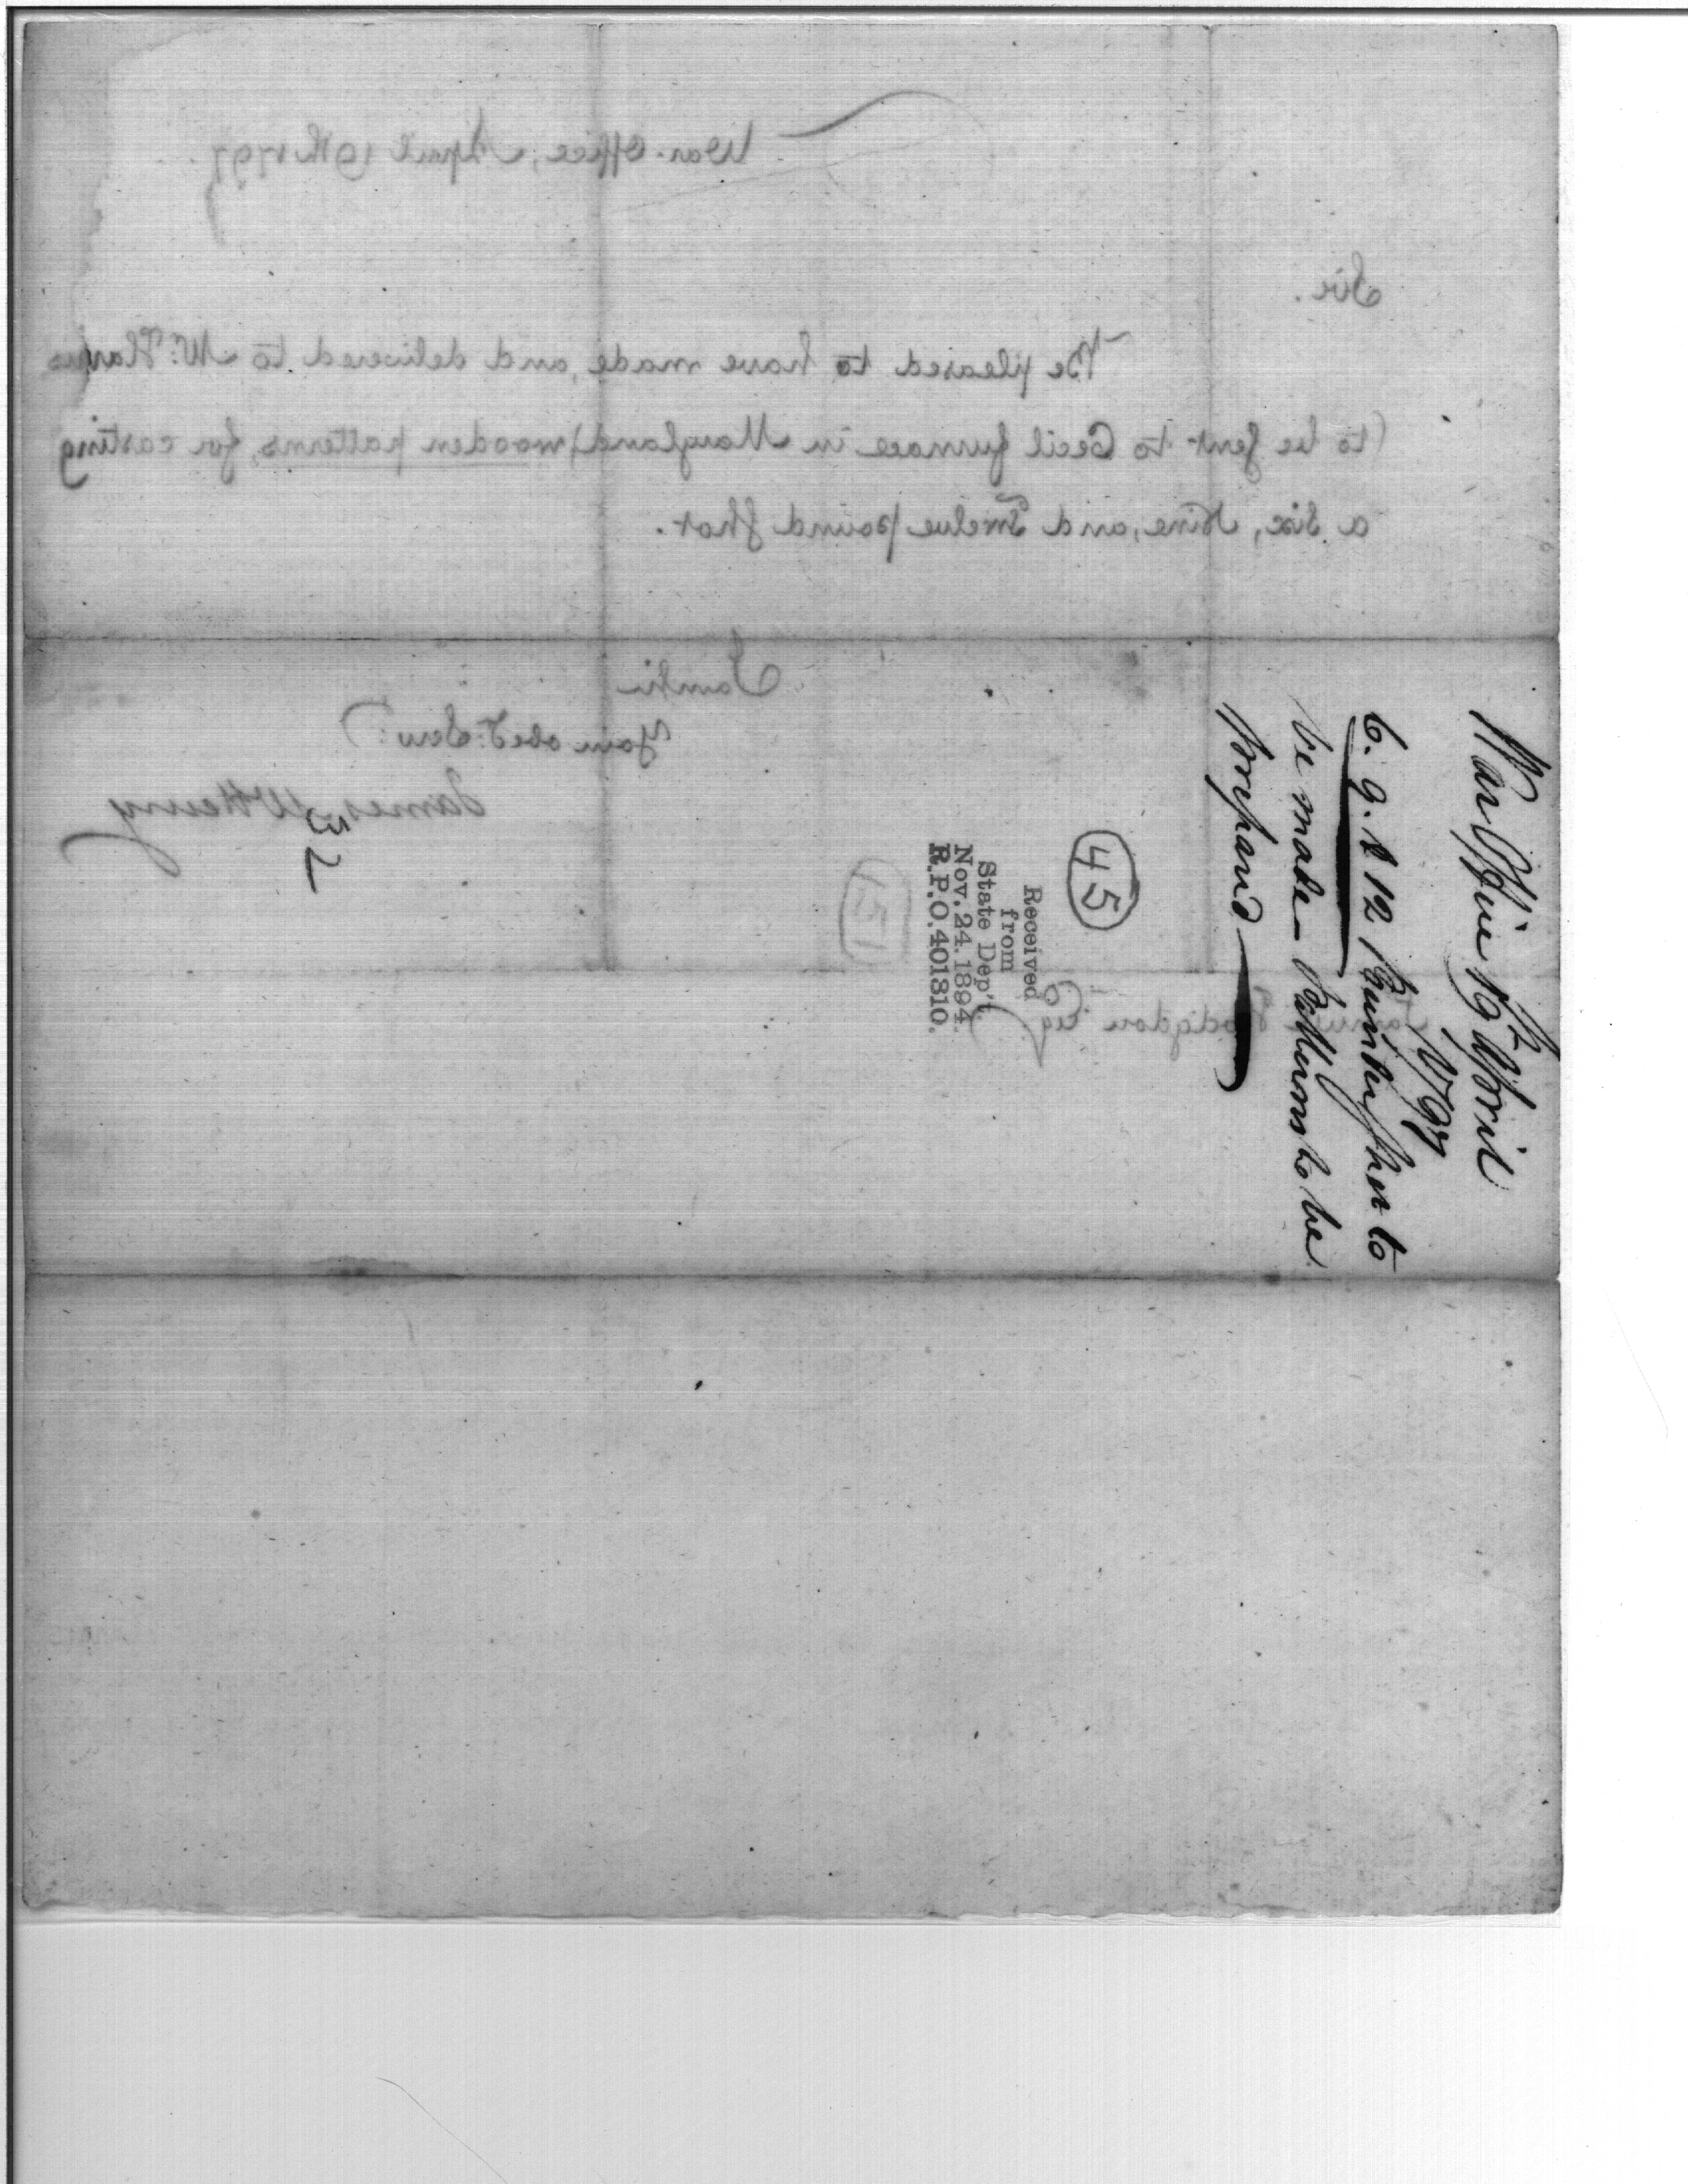 War Office, April 19th 1797.
Sir.
Be pleased to have made, and delivered to Mr. Harris
(to be sent to Cecil furnace in Maryland) wooden patterns, for casting
a Six, Nine, and Twelve pound shot.
I am Sir
Your obedt. Servt.
James McHenry
Samuel Hodgdon Esq
War Office 19th April
1797
6. 9. & 12 Pounder shot to
be made — Patterns to be
prepared
45
Received
from
State Dep't.
Nov. 24. 1894.
R.P.O. 401310.